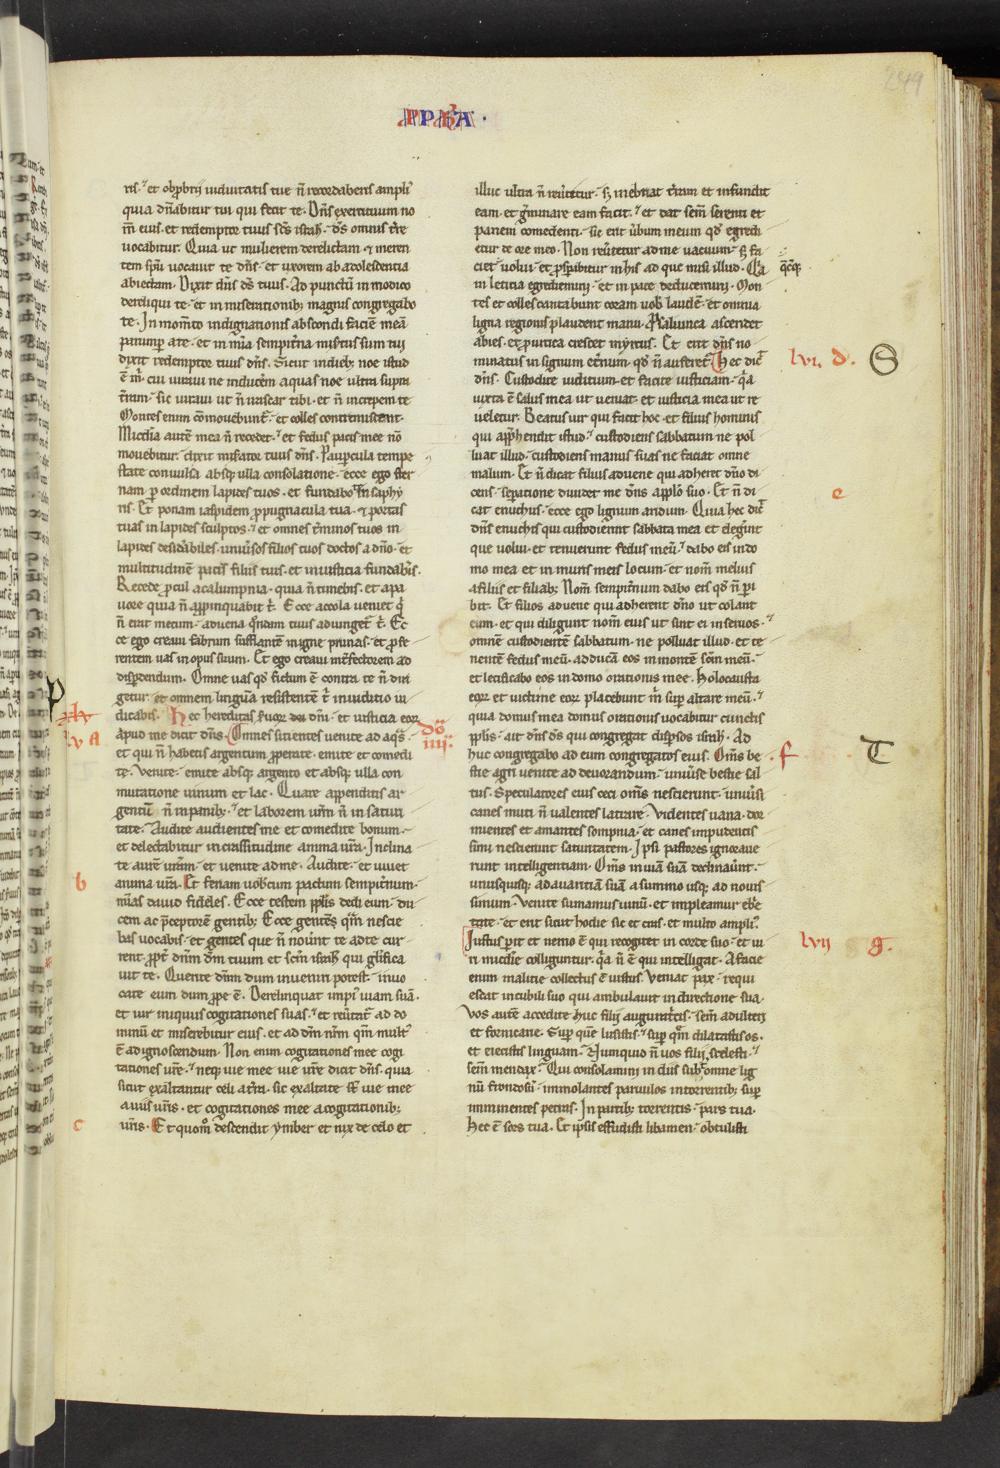 249
PPHA ·
ris. et obprbrij uiduitatis tue ñ recordaberis ampli᾽
quia dñabitur tui qui fecit te. Dñs exercituum no
m̄ eius. et redemptor tuus sc̄s isrł. ds̄ omnis t̄re
uocabitur. Quia ut mulierem derelictam ⁊ meren
tem spū uocauit te dñs. et uxorem ab adolescentia
abiectam. Dixit dñs ds̄ tuus. Ad punctū in modico
dereliqui te. et in miserationib; magnis congregabo
te. In mom̄to indignationis abscondi faciē meā
parumper a te. et in mīa sempit̄na mis̄tus sum tui
dixit redemptor tuus dñs. Sicut in dieb; noe istud
ē m̄. cui iuraui ne inducēm aquas noe ultra supra
t̄ram. sic iuraui ut ñ irascar tibi. et ñ increpem te
Montes enim cōmouebunt᷑. et colles contremiscent.
Mīcdia autē mea ñ recedet. et fedus pacis mee nō
mouebitur. dixit mis̄ator tuus dñs. Paupercula tempe
state conuulsa absq; ulla consolatione. ecce ego ster
nam p̱ ordinem lapides tuos. et fundabo te in saphy
ris. Et ponam iaspidem p̱pugnacula tua. ⁊ portas
tuas in lapides sculptos. et omnes t̄minos tuos in
lapides desid̄abiles. uniūsos filios tuos doctos a dño. et
multitudinē pacis filiis tuis. et in iusticia fundab̄is.
Recede p̱cul a calumpnia. quia ñ timebis. et a pa
uore quia ñ app̱inquabit t᷑. Ecce accola ueniet q̄
ñ erat mecum. aduena q̄ndam tuus adiunget᷑ t᷑. Ec
ce ego creaui fabrum sufflantē in igne prunas. et p̱fe
rentem uas in opus suum. Et ego creaui int̄fectorem ad
disp̱dendum. Omne uas qd̄ fictum ē contra te ñ diri
getur. et omnem linguā resistentē t᷑ in iudicio iu
dicabis. Hec hereditas seruor̄ dñi. et iusticia eor̄
apud me dicit dñs. Omnes sitientes uenite ad aqs̄.
et qui ñ habetis argentum p̱perate. emite et comedi
te. Venite. emite absq; argento et absq; ulla con
mutatione uinum et lac. Quare appenditis ar
gentū ñ in panib;. et laborem urm̄ ñ in saturi
tate. Audite audientes me et comedite bonum.
et delectabitur in crassitudine anima ur̄a. Inclina
te aurē ur̄am. et uenite ad me. Audite. et uiuet
anima ur̄a. Et feriam uobiscum pactum sempit̄num.
mīas dauid fideles. Ecce testem pplis dedi eum. du
cem ac p̄ceptorē gentib; Ecce gentēs qm̄ nescie
bas uocabis. et gentes que ñ noūnt te ad te cur
rent. ppt̄ dnm̄ dm̄ tuum et scm̄ isrł qui glificā
uit te. Querite dnm̄ dum inueniri potest. inuo
cate eum dum p̱pe ē. Derelinquat impi᾽ uiam suā.
et uir iniquus cogitationes suas. et reūtat᷑ ad do
minū et miserebitur eius. et ad dm̄ nrm̄ qm̄ mult᾽
ē ad ignoscendum. Non enim cogitationes mee cogi
tationes ur̄e. neq; uie mee uie ur̄e dicit dñs. quia
sicut exaltantur celi a t̄ra. sic exaltate st̄ uie mee
a uiis ur̄is. et cogitationes mee a cogitationib;
ur̄is. Et quom̊ descendit ymber et nix de celo et
lv A
dō
iiij.
b
c
illuc ultra ñ reūtetur. s; inebriat t̄ram et infundit
eam. et g̃minare eam facit. et dat sem̄ serenti et
panem comedenti. sic erit ūbum meum qd̄ egredi
etur de ore meo. Non reūtetur ad me uacuum. s; fa
ciet q̄cq̄; uolui. et p̱sp̄abitur in his ad que misi illud. Qa
in leticia egrediemini. et in pace deducemini. Mon
tes et colles cantabunt coram uob̄ laudē. et omnia
ligna regionis plaudent manu. Psaliunca ascendet
abies. et p̱ urtica crescet myrtus. Et erit dñs no
minatus in signum et̄num. qd̄ ñ auferet᷑. Hec dic̄
dñs. Custodite iudicium et facite iusticiam. q̄a
iuxta ē salus mea ut ueniat. et iusticia mea ut re
ueletur. Beatus uir qui facit hoc. et filius hominis
qui app̱hendit istud. custodiens sabbatum ne pol
luat illud. custodiens manus suas ne faciat omne
malum. Et ñ dicat filius aduene qui adheret dño di
cens. sep̱atione diuidet me dñs a pplo suo. Et ñ di
cat enuchus. ecce ego lignum aridum. Quia hec dic̄
dñs enuchis qui custodierint sabbata mea et eleg̃int
que uolui. et tenuerint fedus meū. dabo eis in do
mo mea et in muris meis locum. et nom̄ melius
a filiis et filiab; Nom̄ sempit̄num dabo eis qd̄ ñ p̱i
bit. Et filios aduene qui adherent dño ut colant
eum. et qui diligunt nom̄ eius ut sint ei in seruos.
omnē custodientē sabbatum. ne polluat illud. et te
nentē fedus meū. adducā eos in montē scm̄ meū.
et letificabo eos in domo orationis mee. Holocausta
eor̄ et uictime eor̄ placebunt m̄ sup̱ altare meū.
quia domus mea domus orationis uocabitur cunctis
pplis. ait dñs ds̄ qui congregat disp̱sos isrł. Ad
huc congregabo ad eum congregatos eius. Om̄s be
stie agri uenite ad deuorandum. uniūse bestie sal
tus. Speculatores eius ceci om̄s nescierunt. uniūsi
canes muti ñ ualentes latrare. Videntes uana. dor
mientes et amantes sompnia. et canes impudentis
simi nescierunt saturitatem. Ipsi pastores ignoraue
runt intelligentiam. Om̄s in uiā suā declinaūnt.
unusquisq; ad auaritiā suā a summo usq; ad nouis
simum. Venite sumamus uinū. et impleamur ebrie
tate. et erit sicut hodie sic et cras. et multo ampli᾽.
Iustus p̱it et nemo ē qui recogitet in corde suo. et ui
ri mīcdie colliguntur. q̄a ñ ē qui intelligat. A facie
enim malitie collectus ē iustus. Veniat pax. requi
escat in cubili suo qui ambulauit in directione sua.
Vos autē accedite huc filij auguratricis. sem̄ adulteri
et fornicarie. Sup̱ quē lusistis. sup̱ qm̄ dilatastis os.
et eiecistis linguam. Numquid ñ uos filij scelesti.
sem̄ mendax. Qui consolamini in diis sub᾽ omne lig
nū frondosū. immolantes paruulos in torrentib; sup̱
imminentes petras. In partib; torrentis. pars tua.
Hec ē sors tua. Et ipsis effudisti libamen. obtulisti
lvi. d. S
e
. f T
lvij g.